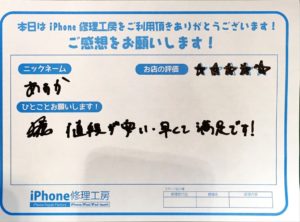 本日は iPhone 修理工房をご利用頂きありがとうございます！
ご感想をお願いします！
ニックネーム
お店の評価 ★★★★★
あゆか
ひとことお願いします！
値段が安い・早くて 満足です！
iPhone修理工房
iPhone Repair Factory